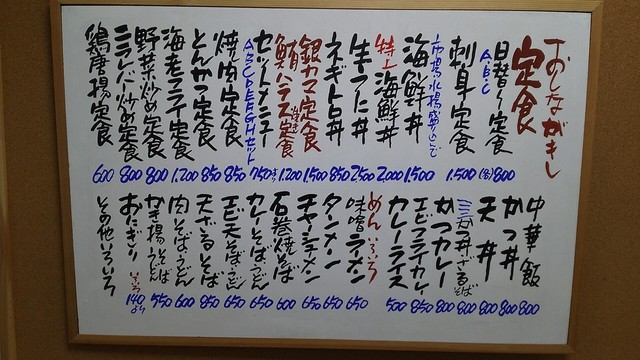 おしながきし
定食
日替り定食 A.B.C (各)800
刺身定食 1.500
市場水揚盛りこで
海鮮丼 1.500
特上海鮮丼 2.000
生うに丼 2500
ネギトロ丼 850
銀カマ定食 1.500
鮪ハラス定食 1.200
セットメニュー 750
ABCDEFGHセット
焼肉定食 850
とんかつ定食 850
海老フライ定食 1.200
野菜炒め定食 800
ニラレバー炒め定食 800
鶏唐揚定食 600
中華飯 800
かつ丼 800
天丼 800
ミニ天丼ざるそば 800
かつカレー 800
エビフライカレー 850
カレーライス 500
めんいろいろ
味噌ラーメン 650
タンメン 650
チャーシューメン 650
石巻焼そば 600
カレーそば・うどん 650
エビ天そば・うどん 650
天ざるそば 850
肉そば・うどん 600
かき揚そばうどん 550
おにぎりいろいろ 140より
その他いろいろ